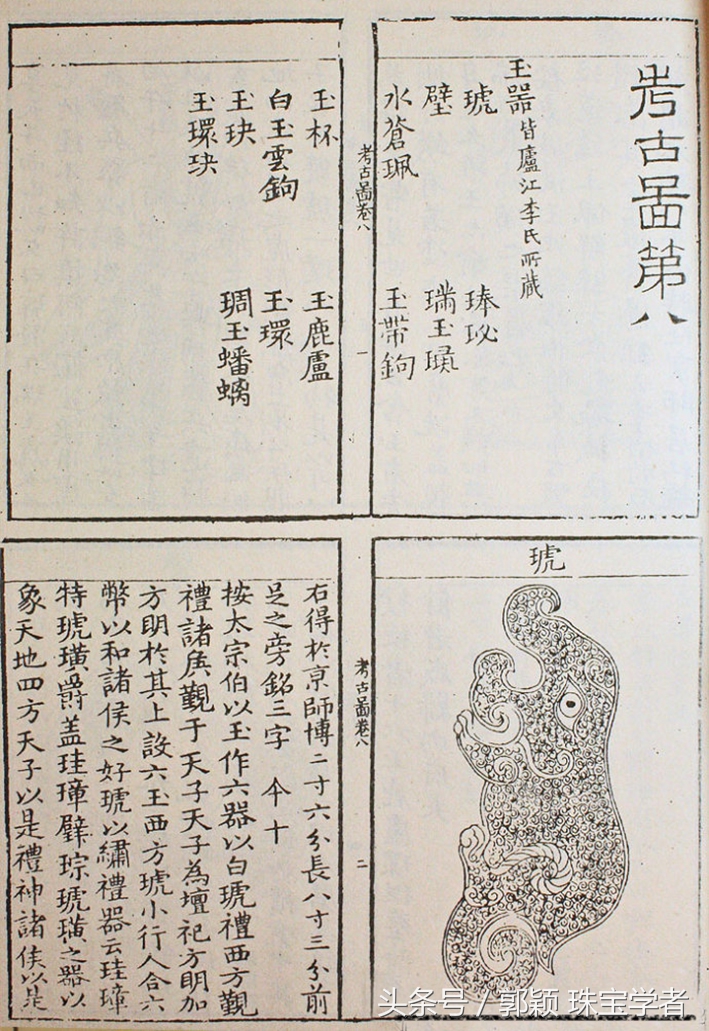 考古圖第八
玉器皆廬江李氏所藏
琥 琫珌
璧 玉
水蒼珮 玉帶鉤
考古圖卷八
一
玉杯 玉鹿盧
白玉雲鉤 玉環
玉玦 琱玉蟠螭
玉環玦
琥
考古圖卷八
二
右得於京師博二寸六分長八寸三分前
足之旁銘三字 十
按太宗伯以玉作六器以白琥禮西方覲
禮諸侯覲于天子天子為壇祀方明加
方明於其上設六玉西方琥小行人合六
幣以和諸侯之好琥以繡禮器云珪璋
特琥璜爵盖珪璋璧琮琥璜之器以
象天地四方天子以是禮神諸侯以是
头条号 / 郭颖 珠宝学者